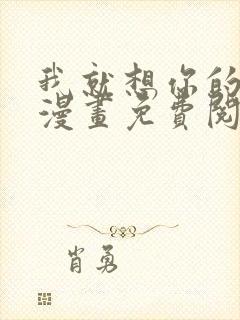 我就想你的
漫畫免費閱
肖勇